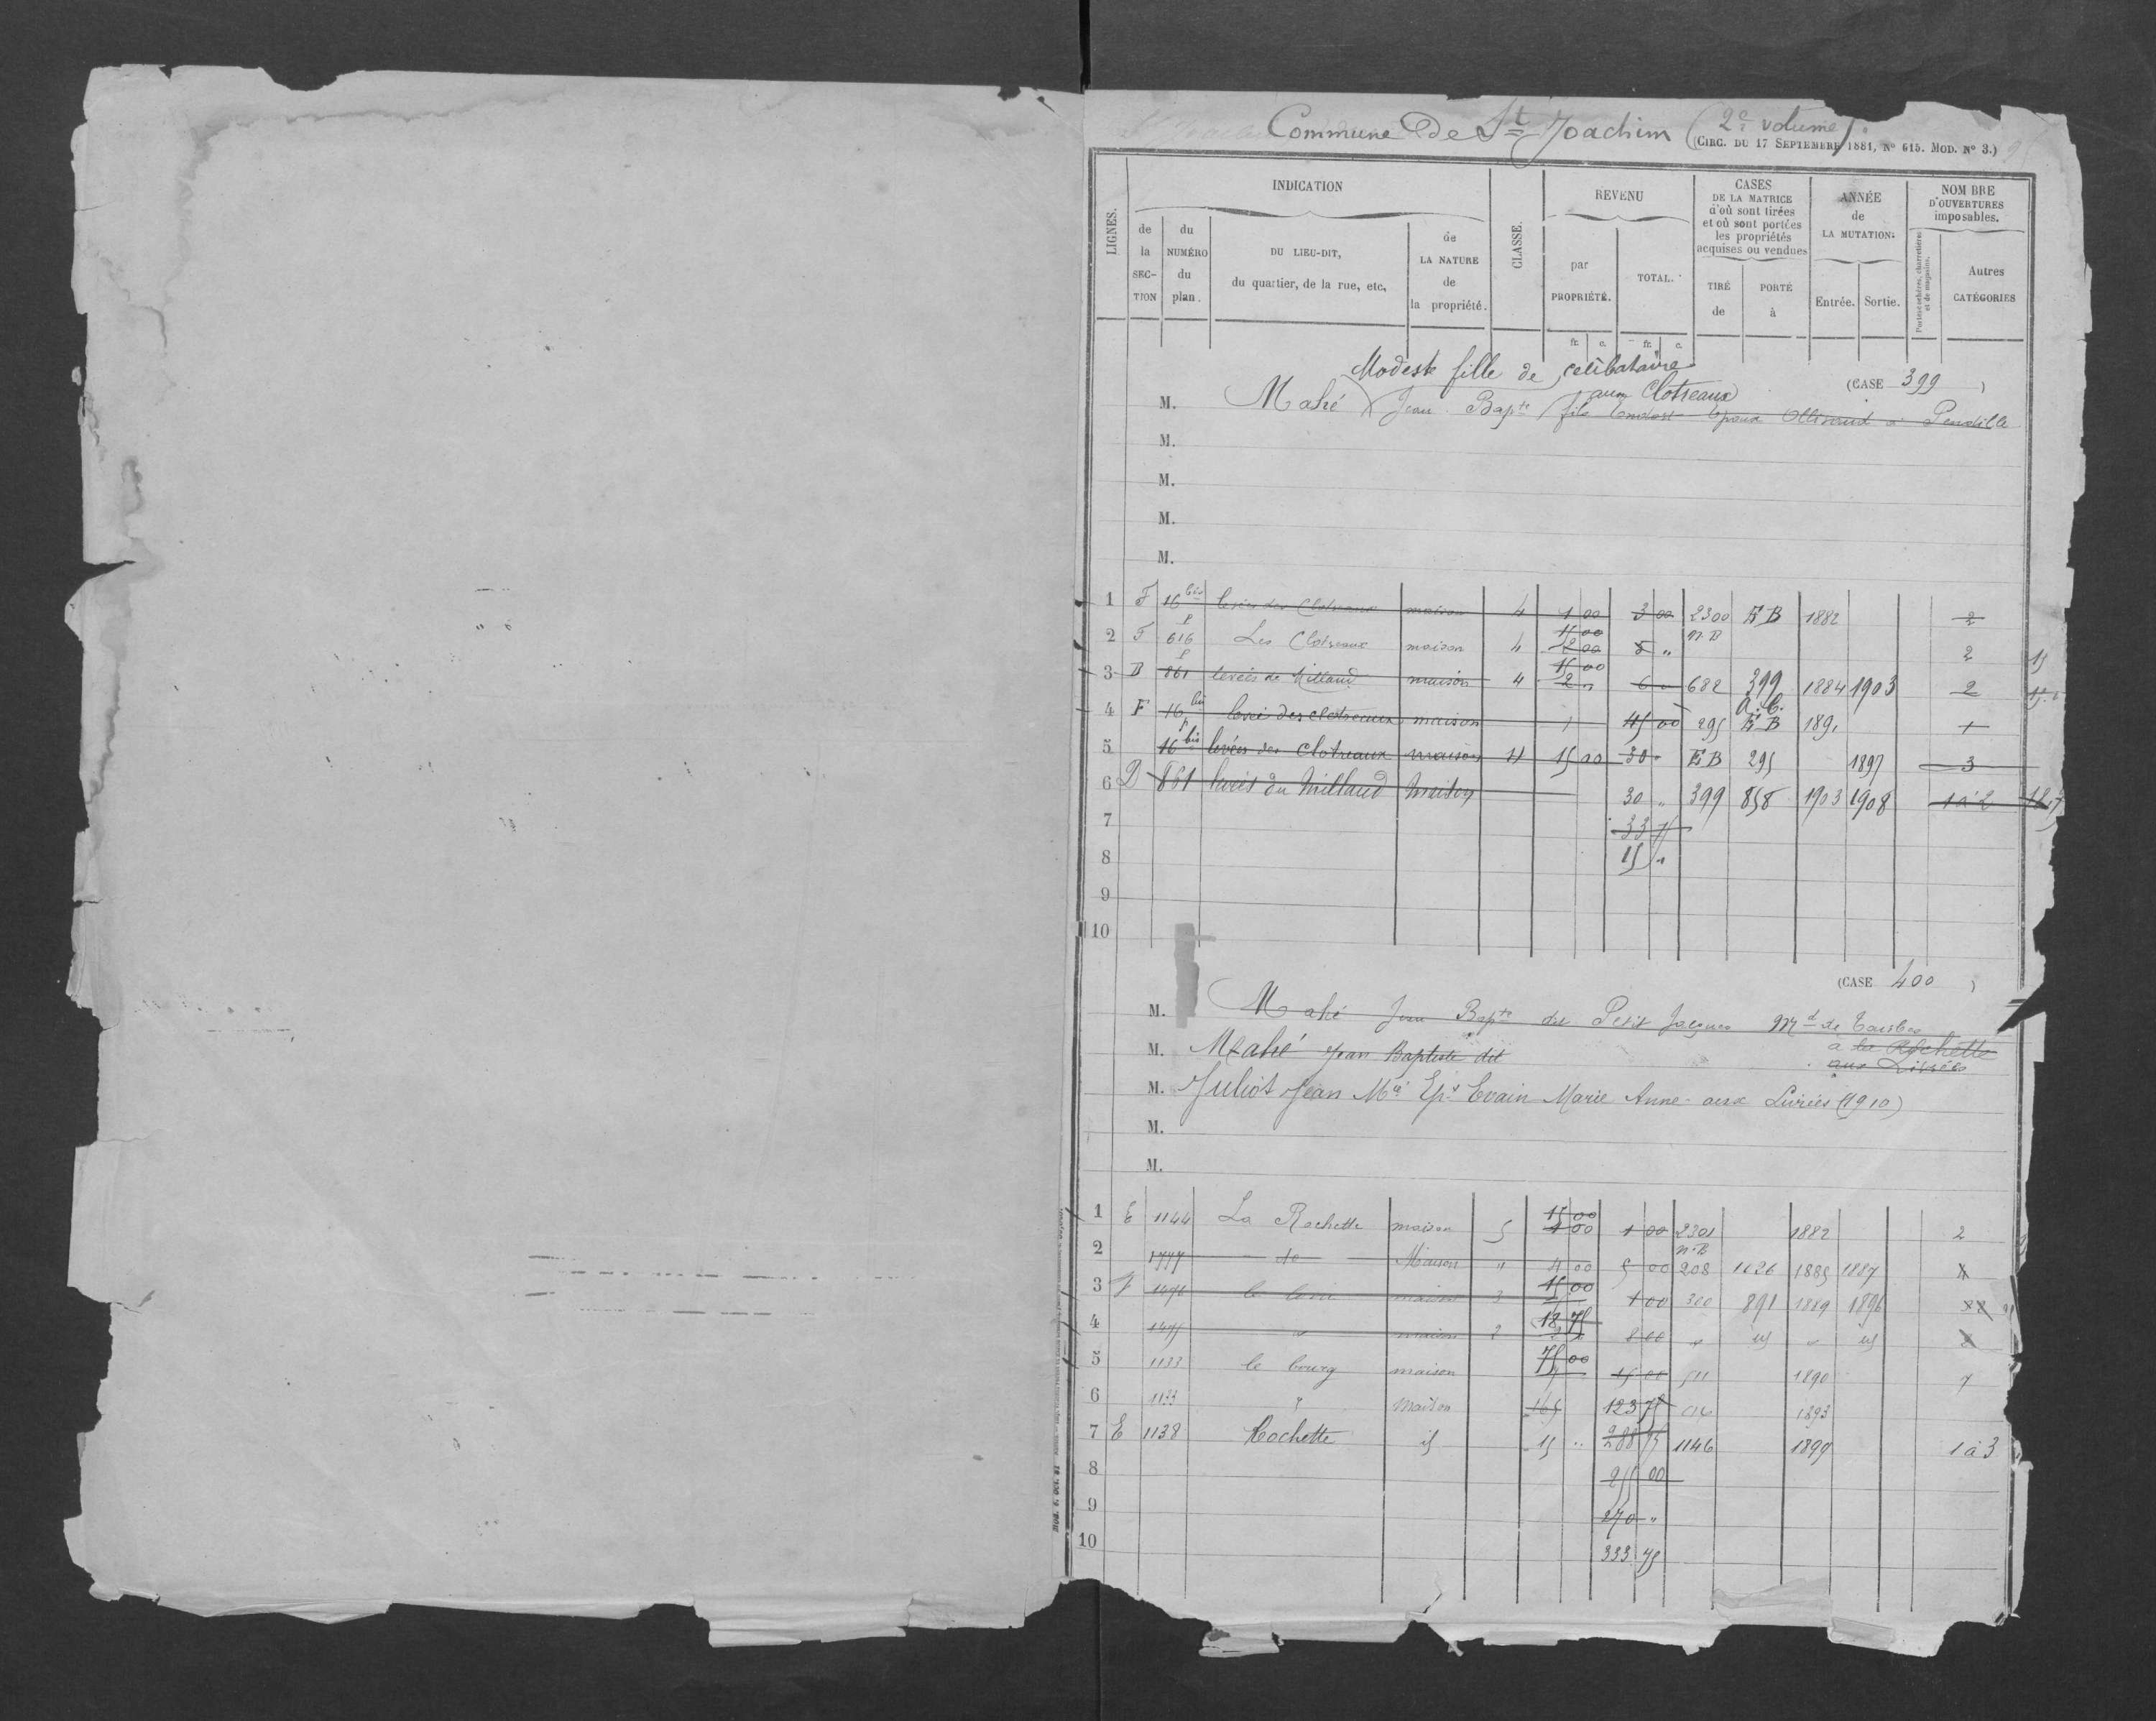 Commune de St Joachim (2e volume).
(CIRC. DU 17 SEPTEMBRE 1881, No 615. MOD. No 3.)
LIGNES.
INDICATION
de la SECTION
du NUMÉRO du plan.
DU LIEU-DIT, du quartier, de la rue, etc,
de LA NATURE de la propriété.
CLASSE.
REVENU
par PROPRIÉTÉ.
TOTAL.
fr. c. fr. c.
CASES DE LA MATRICE d'où sont tirées et où sont portées les propriétés acquises ou vendues
TIRÉ de
PORTÉ à
ANNÉE de LA MUTATION:
Entrée. Sortie.
NOMBRE D'OUVERTURES imposables.
Portes cochères, charretières et de magasins.
Autres CATÉGORIES
(CASE 399 )
Modeste fille de célibataire
aux Clotreaux
M. Mahé Jean Bapte fils époux
M.
M.
M.
M.
1 F 16 bis levées des Clotreaux maison 4 1 00 3 00 2300 EB 1882 2
2 F 616 Les Clotreaux maison 4 15 00 5 " n.B 2 15
3 B 861 levées de Millaud maison 4 15 00 2 " 6 " 682 399 1884 1903 2
4 F 16 bis levée des clotreaux maison 1 45 00 295 EB 1891 1
5 16 bis levées des Clotreaux maison 4 15 00 30 " EB 295 1897 3
6 D 861 levées du Millaud Maison 30 " 399 858 1903 1908 1 à 2
7 33 75
8 15 "
9
10
(CASE 400 )
M. Mahé Jean Bapte dit Petit Jacques Md de
M. Mahé Jean Baptiste dit à la Rochette
aux Livrées
M. Juliot Jean Mie Ep. Evain Marie Anne aux Livrées (1910)
M.
M.
1 E 1144 La Rochette maison 5 15 00 1 00 1 00 2301 1882 2
2 1777 do Maison " 4 00 5 00 n.B 208 1026 1885 1887 4
3 F 1476 maison 3 15 00 1 00 300 891 1889 1896
4 1477 " maison 2 18 75 8 00 " id " id
5 1133 le bourg maison 75 00 15 00 511 1890 7
6 1133 " Maison 165 123 75 1893
7 E 1138 Rochette id 15 " 288 75 1146 1899 1 à 3
8 255 00
9 270 "
10 333 75